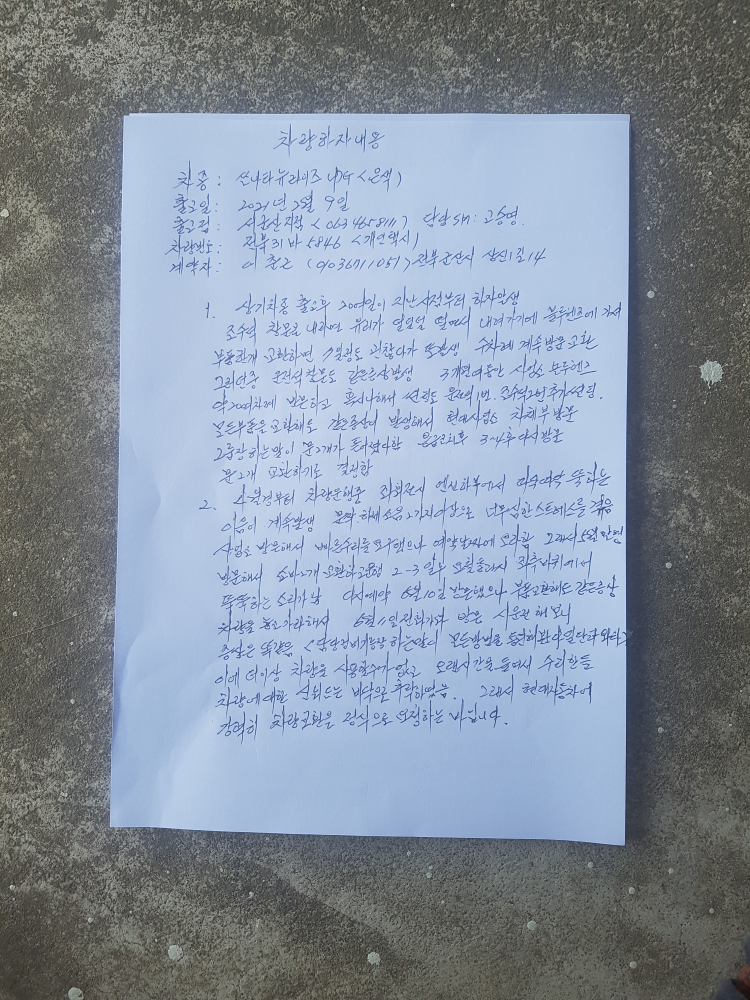 차량하자내용
차종: 쏘나타뉴라이즈 LPG <은색>
출고일: 2021년 2월 9일
출고점: 서군산지점 <063 4658111> 담당 SM: 고승영.
차량번호: 전북31바 5846 <개인택시>
계약자: 이춘근 (01036711051) 전북군산시 삼신1길 14
1. 상기차종 출고후 20여일이 지난시점부터 하자발생
조수석 창문을 내리면 유리가 덜덜덜 떨면서 내려가기에 블루핸즈에 가서
부품한개 교환하면 일정도 괜찮다가 또발생 수차례 계속방문교환
그러던중 운전석창문도 같은증상발생 3개월여동안 사업소 블루핸즈
약20여차례 방문하고 혹시나해서 썬팅도 운전석1번. 조수석2번추가썬팅.
모든부품을교환해도 같은증상이 발생해서 현대사업소 차체부방문
그룹장하는말이 문2개가 틀어졌다함 응급조치후 3~4후다시방문
문2개 교환하기로 결정함
2. 4월경부터 차량운행중 좌회전시 엔진하부에서 뚝하는
이음이 계속발생 문짝하체소음2가지이상으로 너무심한스트레스를 겪음
사업소 방문해서 빠른수리를 요구했으나 예약날짜에 오라함 그래서 5월
방문해서 쇼바2개교환하고운행 2-3일후 요철통과시 좌측바퀴에서
뚝뚝하는 소리가남 다시예약 6월10일 방문했으나 부품교환해도 같은증상
차량을 놓고가라해서 6월11일전화가와 방문 시운전해보니
증상은 똑같음 하는말이 모든방법을동원해봐야될단다
이에 더이상 차량을 사용할수가없고 오랜시간을 들여서 수리한들
차량에대한 신뢰도는 바닥으로 추락하였음. 그래서 현대자동차에
강력히 차량교환을 정식으로 요청하는 바입니다.